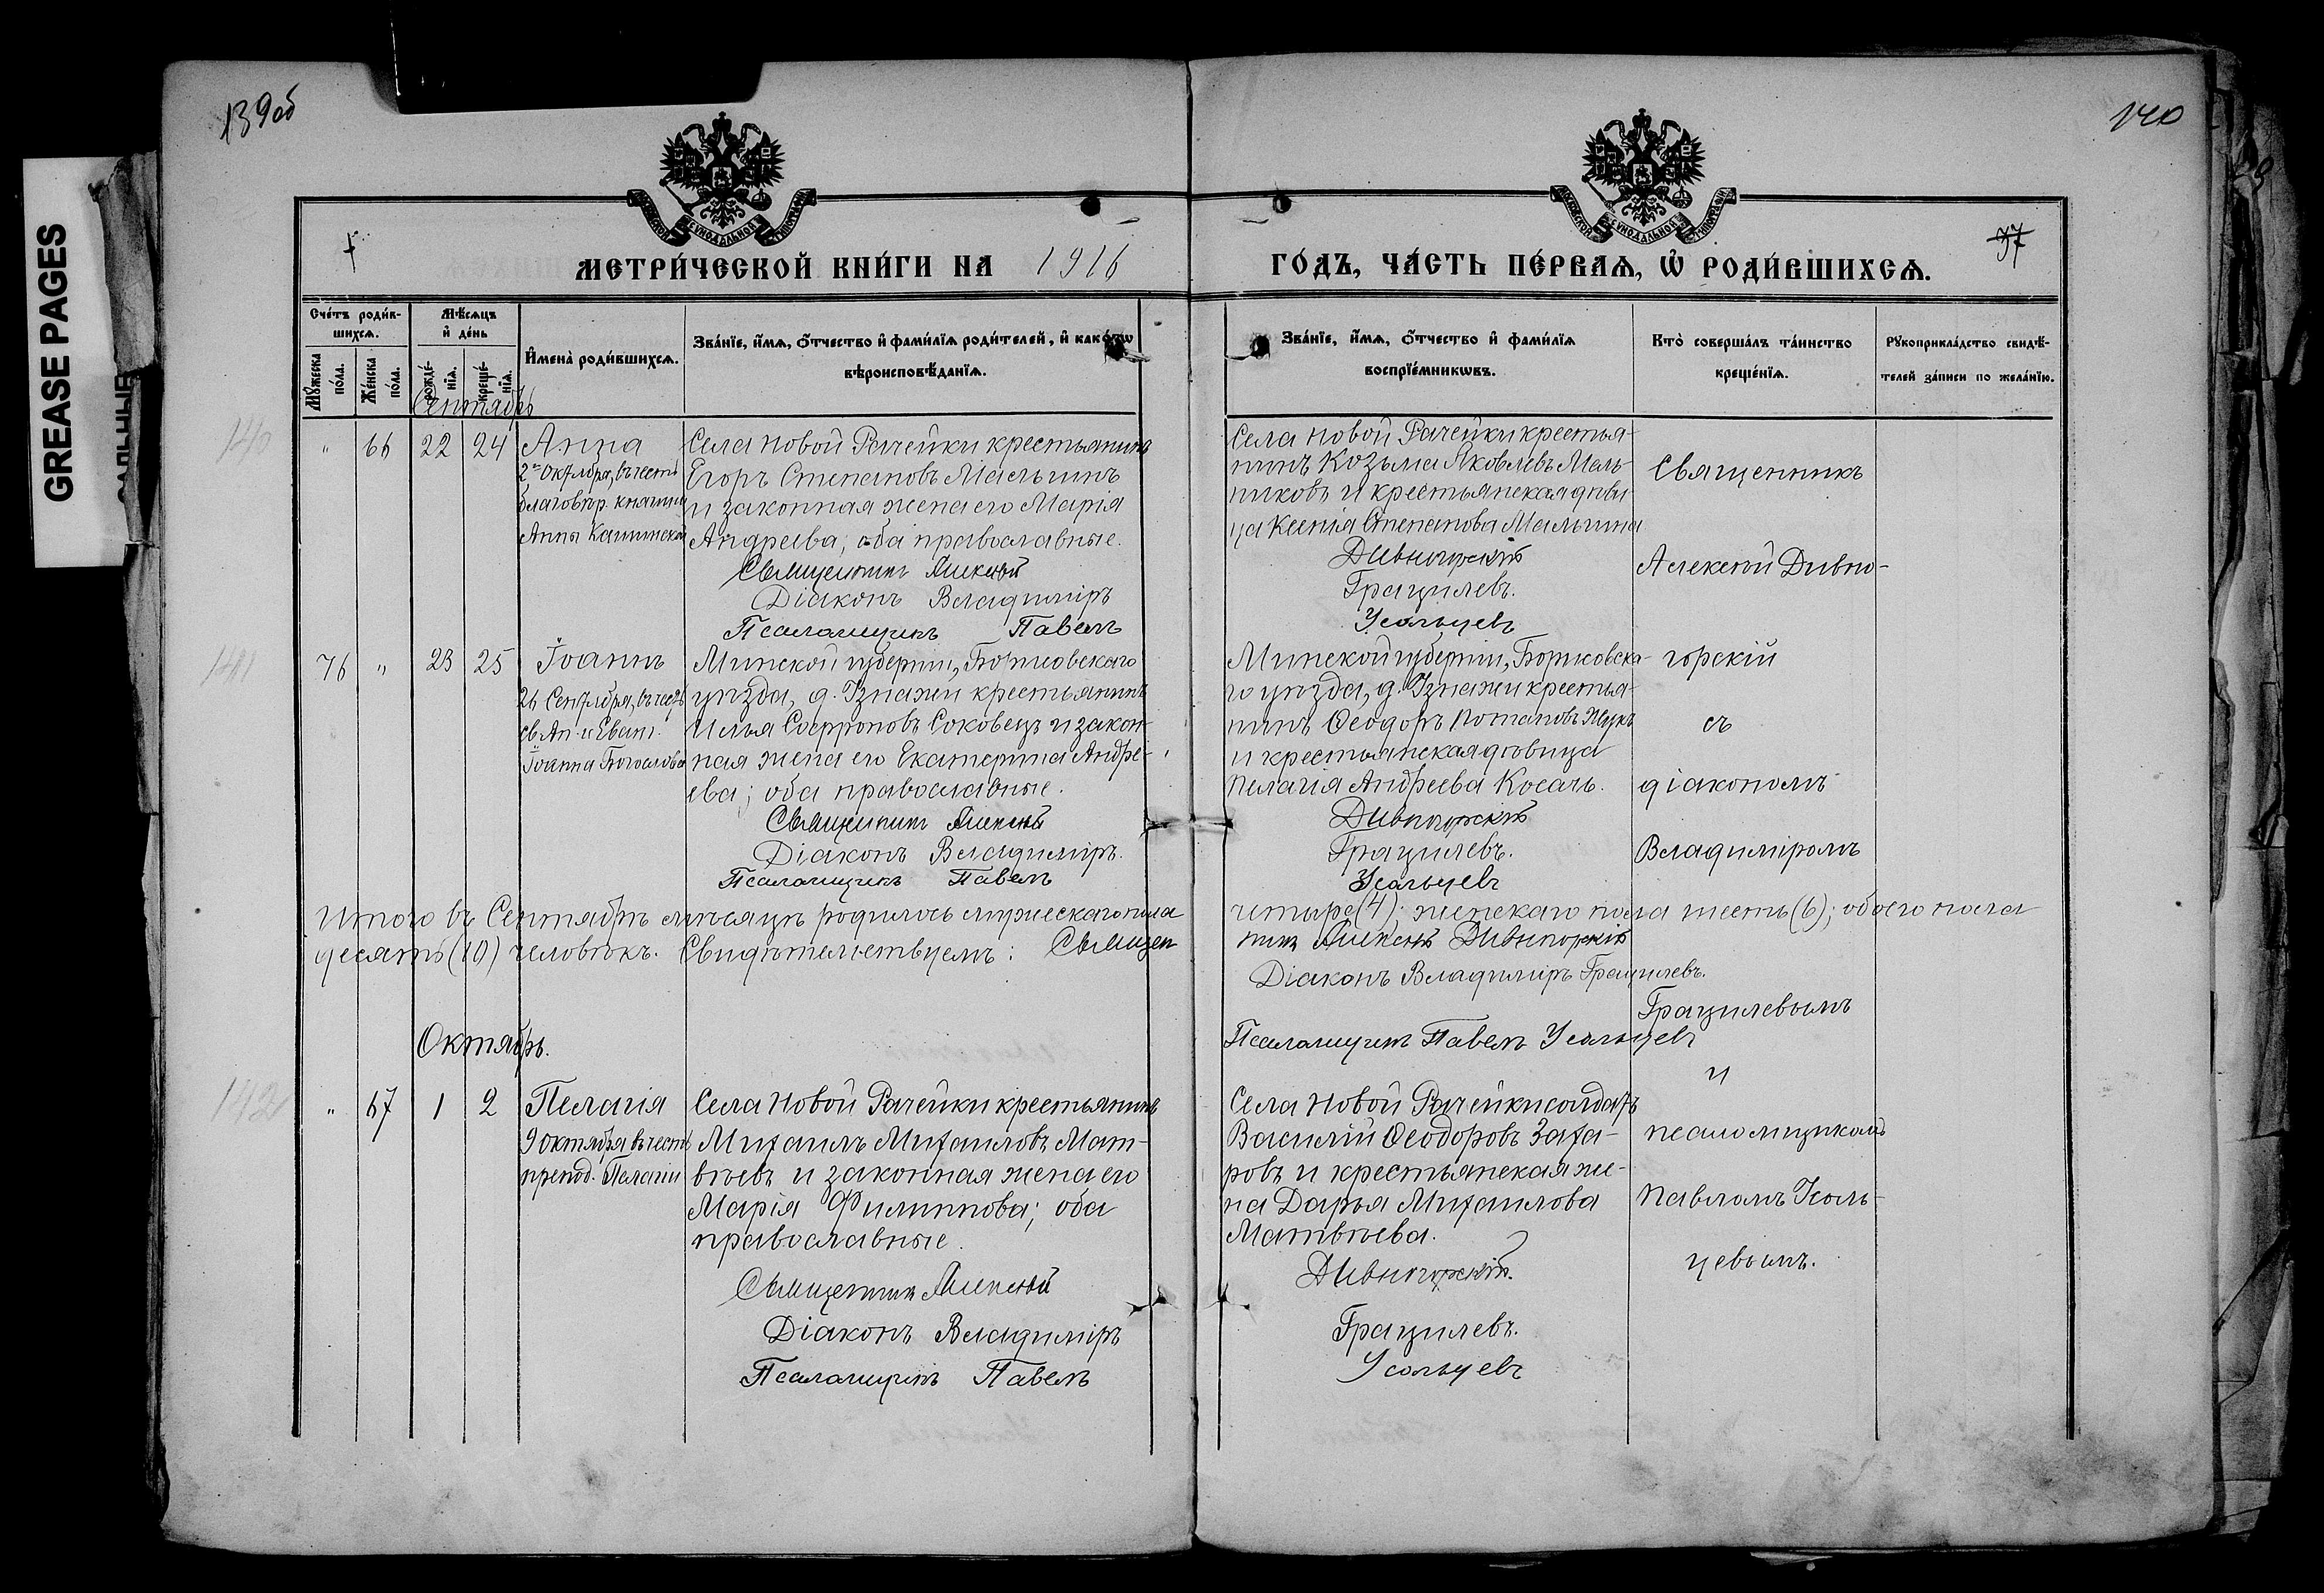 139об
140
GREASE PAGES
МЕТРИ́ЧЕСКОЙ КНИ́ГИ НА 1916
ГО́ДЪ, ЧА́СТЬ ПЕ́РВАѦ, Ѽ РОДИ́ВШИХСѦ.
37
Сче́тъ роди́в-
шихсѧ.
Мѣсѧцъ
и҆ де́нь
Мꙋ́жеска по́ла.
Же́нска по́ла.
рожде́-нїѧ.
креще́-нїѧ.
И҆мена̀ роди́вшихсѧ.
Зва́нїе, и҆́мѧ, ѻ҆́тчество и҆ фами́лїѧ роди́телей, и҆ како́гѡ
вѣроисповѣ́данїѧ.
Зва́нїе, и҆́мѧ, ѻ҆́тчество и҆ фами́лїѧ
воспрїе́мникѡвъ.
Кто̀ соверша́лъ та́инство
креще́нїѧ.
Рꙋкоприкла́дство свидѣ́-
телей за́писи по жела́нїю.
Сентябрь
140
" 66 22 24 Анна
2го октября, въ честь
благовѣр. княгини
Анны Кашинской
Села Новой Рачейки крестьянинъ
Егоръ Степановъ Малышинъ
и законная жена его Марія
Андреева; оба православные.
Священникъ Алексѣй
Діаконъ Владиміръ
Псаломщикъ Павелъ
Села Новой Рачейки крестья-
нинъ Козьма Яковлевъ Мель-
никовъ и крестьянская дѣви
ца Ксенія Степанова Малышина
Дивногорскій
Грацилевъ.
Усольцевъ
Священникъ
Алексѣй Дивно-
141
76 " 23 25 Іоаннъ
26 Сентября, въ честь
св. Ап. и Еванг.
Іоанна Богослова
Минской губерніи, Борисовскаго
уѣзда, д. Изнажи крестьянинъ
Илья Софроновъ Соковецъ и закон-
ная жена его Екатерина Андре-
ева; оба православные.
Священникъ Алексѣй
Діаконъ Владиміръ.
Псаломщикъ Павелъ
Минской губерніи, Борисовска-
го уѣзда, д. Изнажи крестья-
нинъ Ѳеодоръ Потаповъ Жукъ
и крестьянская дѣвица
Пелагія Андреева Косачъ.
Дивногорскій
Грацилевъ.
Усольцевъ
горскій
съ
діакономъ
Владиміромъ
Итого въ Сентябрѣ мѣсяцѣ родилось мужескаго пола четыре (4); женскаго пола шесть (6); обоего пола
десять (10) человѣкъ. Свидѣтельствуемъ: Священ
никъ Алексѣй Дивногорскій
Діаконъ Владиміръ Грацилевъ.
Псаломщикъ Павелъ Усольцевъ
Грацилевымъ
и
Октябрь.
142
" 67 1 2 Пелагія
9 октября въ честь
препод. Пелагіи
Села Новой Рачейки крестьянинъ
Михаилъ Михаиловъ Мат-
вѣевъ и законная жена его
Марія Филиппова; оба
православные.
Священникъ Алексѣй
Діаконъ Владиміръ
Псаломщикъ Павелъ
Села Новой Рачейки солдатъ
Василій Ѳеодоровъ Заха-
ровъ и крестьянская же-
на Дарья Михаилова
Матвѣева.
Дивногорскій.
Грацилевъ.
Усольцевъ
псаломщикомъ
Павломъ Усоль-
цевымъ.